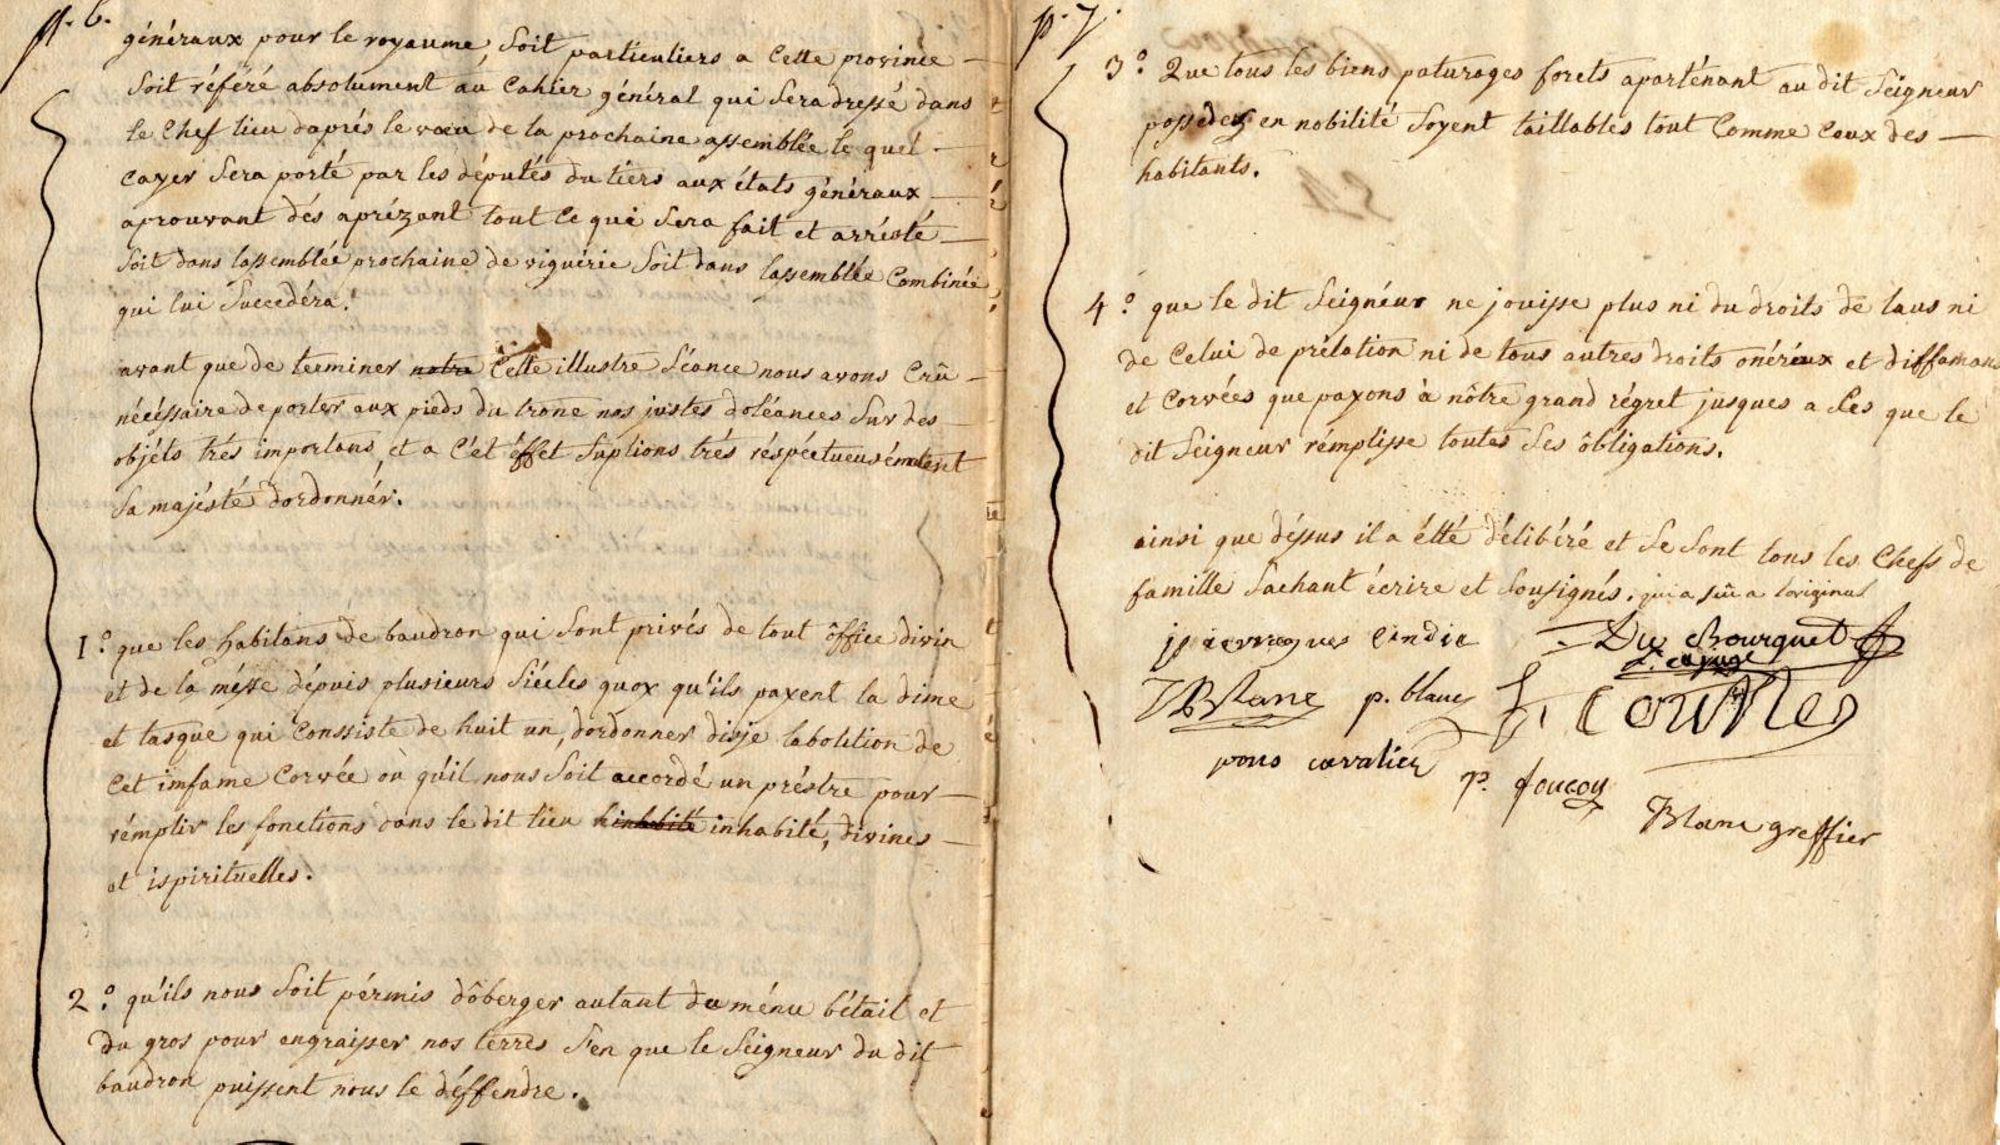 p. 6.
généraux pour le royaume, soit particuliers a Cette province —
soit référé absolument au Cahier général qui sera dressé dans
le Chef lieu daprés le vœu de la prochaine assemblée le quel —
cayer sera porté par les députés du tiers aux états généraux —
aprouvant dés aprézant tout ce qui sera fait et arrésté —
soit dans lassemblée prochaine de viguérie soit dans lassemblée Combinée
qui lui succedéra.
avant que de terminer notre Cette illustre séance nous avons Crû —
nécéssaire de porter aux pieds du trone nos justes doléances sur des —
objéts trés importans, et a cét éffet suplions trés réspéctueusément
sa majésté dordonnér.
1.° que les habitans de baudron qui sont privés de tout ôffice divin
et de la mésse dépuis plusieurs siécles quoy qu'ils payent la dime
et tasque qui Conssiste de huit un, dordonner disje labolition de
Cet imfame Corvée ou qu'il nous soit accordé un préstre pour —
rémplir les fonctions dans le dit lieu hinhabité inhabité, divines —
et ispirituelles.
2.° qu'ils nous soit pérmis dôberger autant du ménu bétail et
du gros pour engraisser nos terres s'en que le seigneur du dit
baudron puissent nous le déffendre.
p. 7.
3.° Que tous les biens paturages forets aparténant au dit seigneur
possedez en nobilité soyent taillables tout Comme Ceux des —
habitants.
4.° que le dit seignéur ne jouisse plus ni du droits de laus ni
de Celui de prélation ni de tous autres droits onéréux et diffamans
et Corvées que payons à nôtre grand régret jusques a Ces que le
dit seigneur rémplisse toutes ses ôbligations.
ainsi que déssus il a étté délibéré et se sont tous les Chefs de
famille sachant écrire et sousignés. qui a sçû a loriginal
Du Bourguet
JB Blanc p. blanc
pons cavalier
Blanc greffier